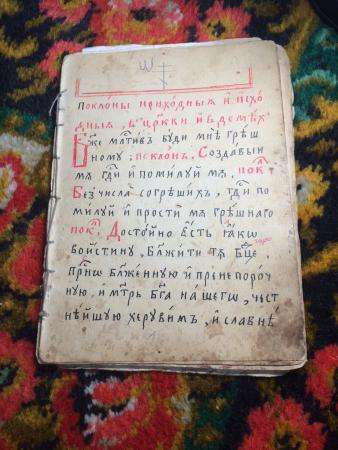 ѿ
Поклоны приходныя и҆ и҆схо
дныя, в' цр҃кви и҆ в̾ домѣхъ
Бж҃е млⷭ҇тивъ буди мнѣ грѣш
ному; поклонъ, Создавый
мѧ гдⷭ҇и и҆ помилуй мѧ, покⷧ҇
Без̾ числа согрѣшихъ, гдⷭ҇и по
милуй и҆ прости мѧ грѣшнаго
покⷧ҇, Достойно є҆сть ꙗ҆кѡ
воистину, бл҃жити тѧ бцⷣе,
прⷭ҇нѡ бл҃женную и҆ пренепороч
ную, и҆ мт҃рь бг҃а на́шегѡ, чест
нѣ́йшую херуви́мъ, и҆ славнѣ